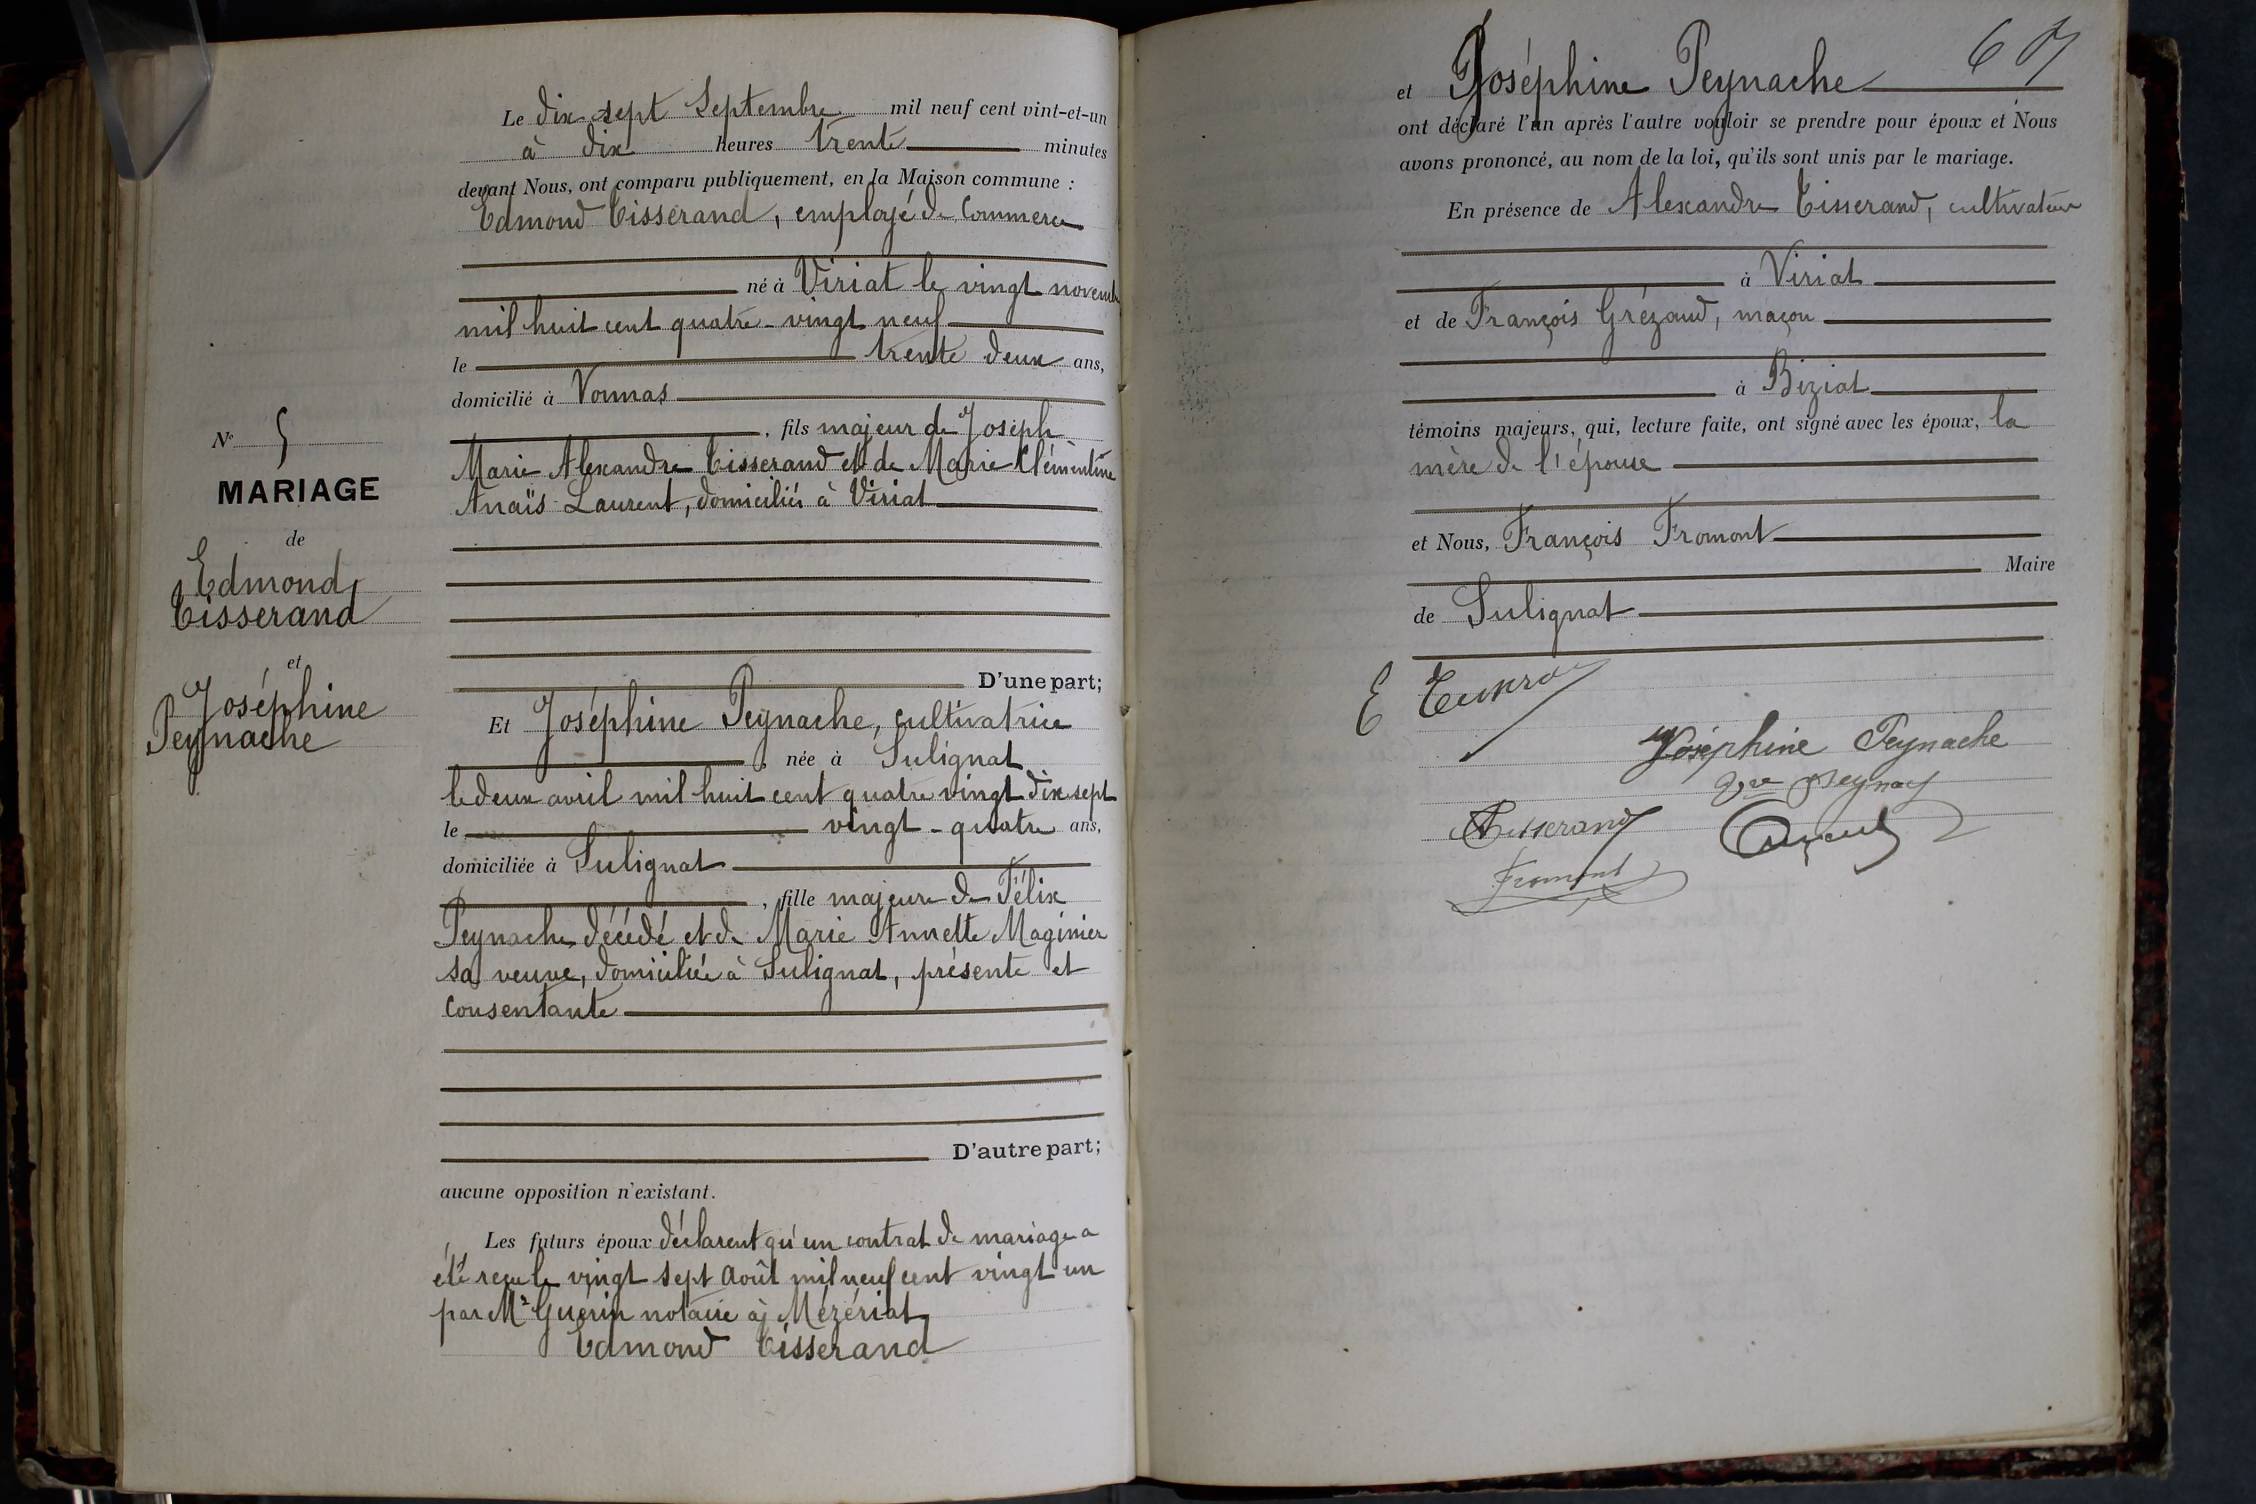 Le dix sept Septembre mil neuf cent vint-et-un
à dix heures trente minutes
devant Nous, ont comparu publiquement, en la Maison commune :
Edmond Tisserand, employé de Commerce
né à Viriat le vingt novembre
mil huit cent quatre-vingt neuf
le trente deux ans,
domicilié à Vonnas
, fils majeur de Joseph
Marie Alexandre Tisserand et de Marie Clémentine
Anaïs Laurent, domiciliés à Viriat
D'une part;
N° 5
MARIAGE
de
Edmond
Tisserand
et
Joséphine
Peynache
Et Joséphine Peynache, cultivatrice
, née à Sulignat
le deux avril mil huit cent quatre vingt dix sept
le vingt-quatre ans,
domiciliée à Sulignat
, fille majeure de Félix
Peynache décédé et de Marie Annette Maginier
sa veuve, domiciliée à Sulignat, présente et
consentante
D'autre part;
aucune opposition n'existant.
Les futurs époux déclarent qu'un contrat de mariage a
été reçu le vingt sept Août mil neuf cent vingt un
par Me Guérin notaire à Mézériat
Edmond Tisserand
et Joséphine Peynache
ont déclaré l'un après l'autre vouloir se prendre pour époux et Nous
avons prononcé, au nom de la loi, qu'ils sont unis par le mariage.
En présence de Alexandre Tisserand, cultivateur
à Viriat
et de François Grézaud, maçon
à Biziat
témoins majeurs, qui, lecture faite, ont signé avec les époux, la
mère de l'épouse
et Nous, François Fromont
Maire
de Sulignat
E
Joséphine Peynache
Tisserand
Fromont